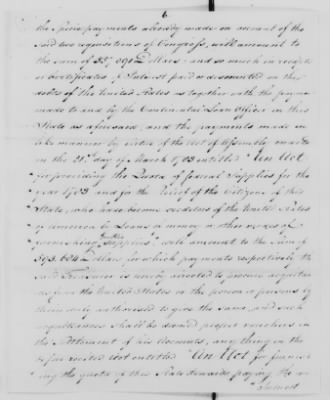 6
the specie payments already made on account of the
said two requisitions of Congress, will amount to
the sum of 35,890 Dollars: and so much in receipts
or Certificates of Interest paid or discounted on the
debts of the United States as together with the payments
made to and by the Continental Loan Officer in this
State as aforesaid, and the payments made in
like manner by virtue of the Act of Assembly made
on the 21st day of March 1783 entitled "An Act
for providing the Quota of Federal Supplies for the
year 1783 and for the Relief of the Citizens of this
State, who have become creditors of the United States
of America by Loans of money or other modes of
furnishing public Supplies" will amount to the sum of
Dollars, for which payments respectively the
said Treasurer is hereby directed to procure acquittan
ces from the United States or the person or persons by
them duly authorised to give the same, and such
acquittances shall be deemed proper vouchers in
the settlement of his Accounts, any thing in the
before recited Act entitled "An Act for furnish
ing the quota of this State towards paying the
Interest